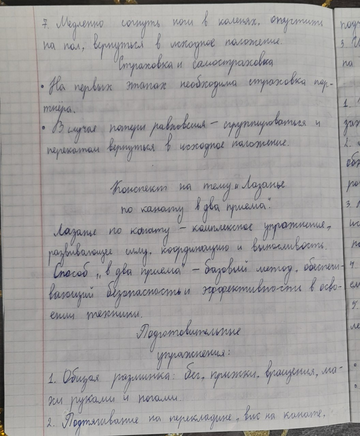 7. Медленно согнуть ноги в коленях, опустить
на пол, вернуться в исходное положение.
Страховка и Самостраховка
• На первых этапах необходима страховка пар-
тнера.
• В случае потери равновесия – сгруппироваться и
перекатом вернуться в исходное положение.
Конспект на тему „Лазанье
по канату в два приёма".
Лазанье по канату – комплексное упражнение,
развивающее силу, координацию и выносливость.
Способ „в два приёма" – базовый метод, обеспечи-
вающий безопасность и эффективности в осво-
ении техники.
Подготовительные
упражнения:
1. Общая разминка: бег, прыжки, вращения, ма-
хи руками и ногами.
2. Подтягивание на перекладине, вис на канате.